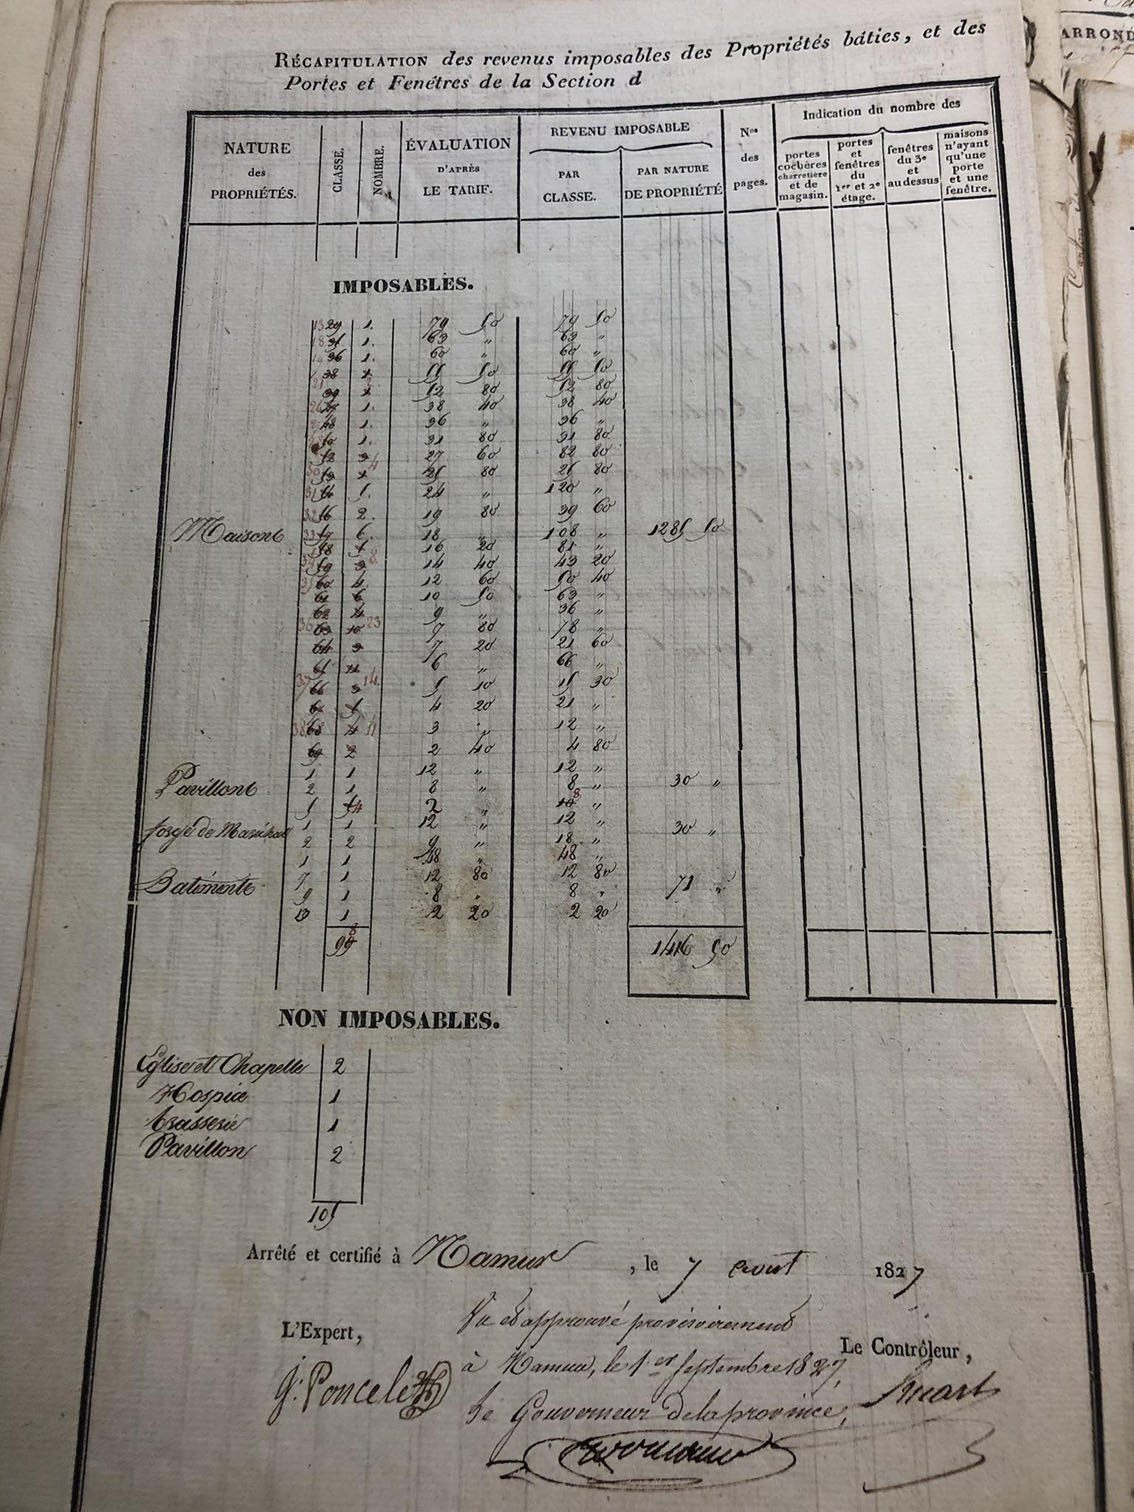 RÉCAPITULATION des revenus imposables des Propriétés bâties, et des
Portes et Fenêtres de la Section d
NATURE des PROPRIÉTÉS.
CLASSE.
NOMBRE.
ÉVALUATION D'APRÈS LE TARIF.
REVENU IMPOSABLE
PAR CLASSE.
PAR NATURE DE PROPRIÉTÉ
Nos des pages.
Indication du nombre des
portes cochères charretière et de magasin.
portes et fenêtres du 1er et 2e étage.
fenêtres du 3e et au dessus
maisons n'ayant qu'une porte et une fenêtre.
IMPOSABLES.
1. 79 50 79 50
1. 63 " 63 "
1. 60 " 60 "
55 50 55 50
52 80 52 80
1. 38 40 38 40
48 1. 36 " 36 "
50 1. 31 80 31 80
27 60 82 80
26 80 26 80
24 " 120 "
56 2. 19 80 39 60
Maisons 18 " 108 " 1285 50
58 16 20 81 "
59 3 14 40 43 20
60 4 12 60 50 40
61 6 10 50 63 "
62 4 9 " 36 "
63 10 23 7 80 78 "
64 3 7 20 21 60
65 11 6 " 66 "
66 3 14 5 10 15 30
4 20 21 "
68 4 11 3 " 12 "
69 2 2 40 4 80
1 1 12 " 12 "
Pavillons 2 1 8 " 8 " 30 "
5 2 " 10 8 "
forge de Maréchal 1 1 12 " 12 " 30 "
2 2 9 " 18 "
1 1 48 " 48 "
Batiments 7 1 12 80 12 80 71 "
9 1 8 " 8 "
1 2 20 2 20
99 8 1416 50
NON IMPOSABLES.
Eglise et Chapelle 2
Hospice 1
brasserie 1
Pavillon 2
105
Arrêté et certifié à Namur , le 7 aout 1827
Vu et approuvé provisoirement
L'Expert,
Le Contrôleur,
à Namur, le 1er Septembre 1827,
J. Poncelet
Le Gouverneur de la province,